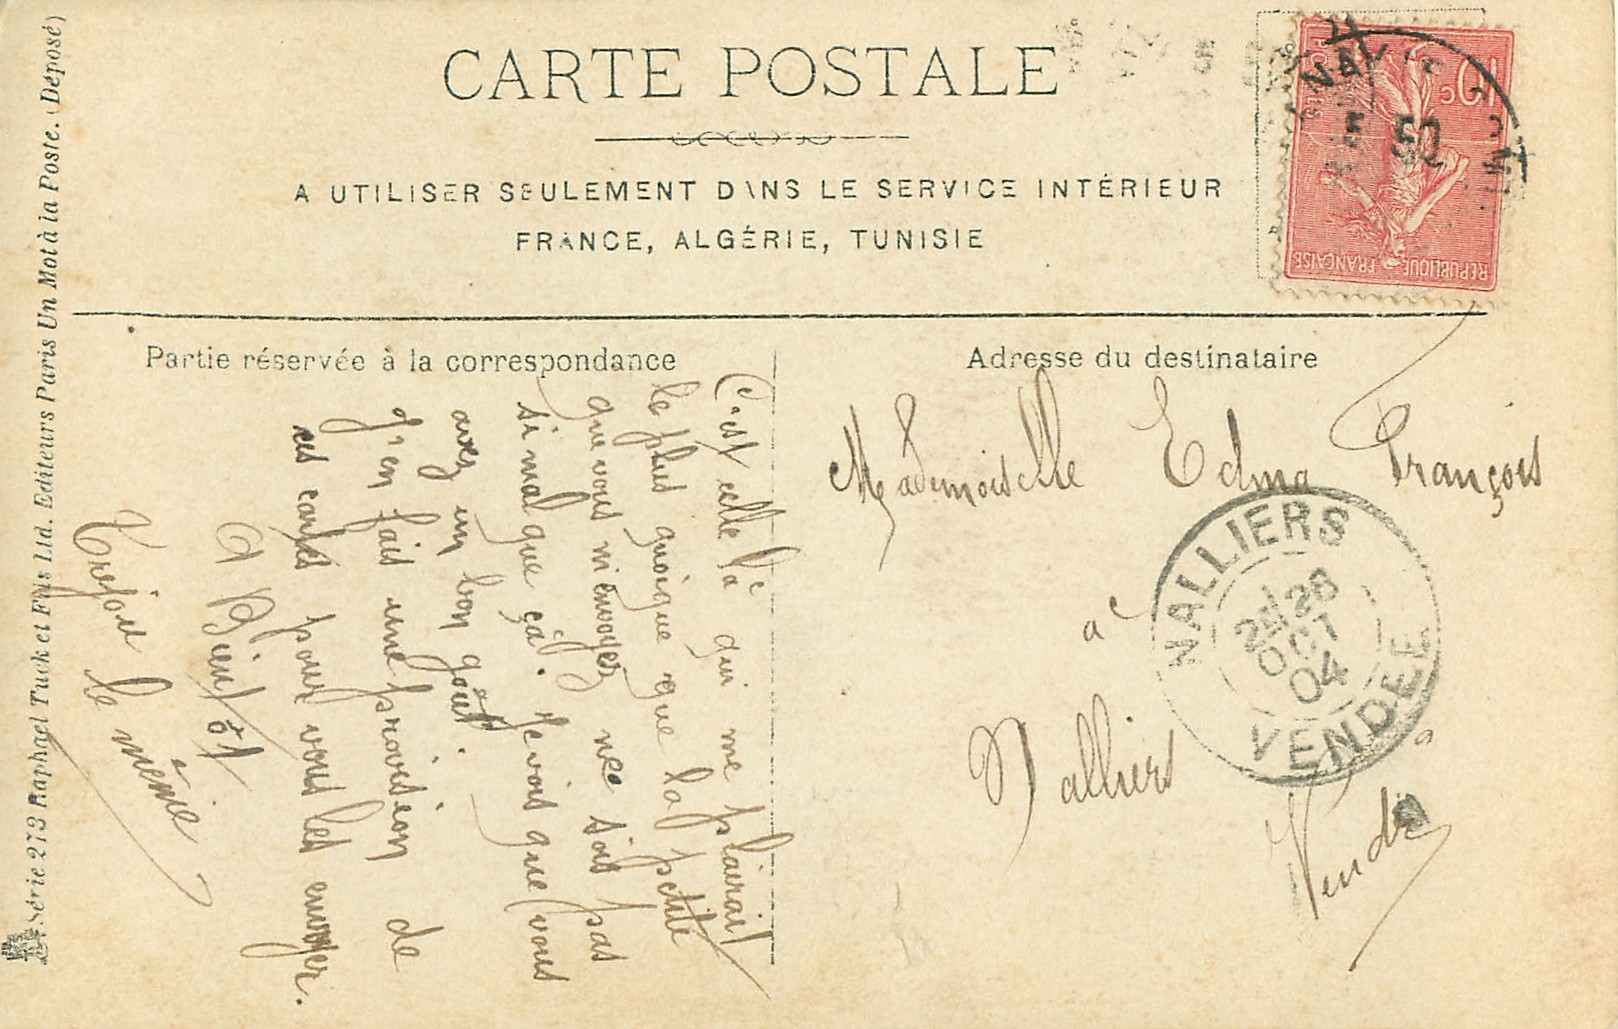 CARTE POSTALE
A UTILISER SEULEMENT DANS LE SERVICE INTÉRIEUR
FRANCE, ALGÉRIE, TUNISIE
10c
REPUBLIQUE FRANÇAISE
Partie réservée à la correspondance
C'est celle là qui me plairait
le plus quoique que la petite
que vous m'envoyez ne sois pas
si mal que ça. Je vois que vous
avez un bon goût.
J'en fais une provision de
ces cartes pour vous les envoyer.
A Bientôt
le même
Adresse du destinataire
Mademoiselle Edma François
à
Nalliers
Vendée
NALLIERS
2E/28
OCT
04
VENDEE
Série 273 Raphael Tuck et Fils Ltd. Editeurs Paris Un Mot à la Poste. (Déposé)